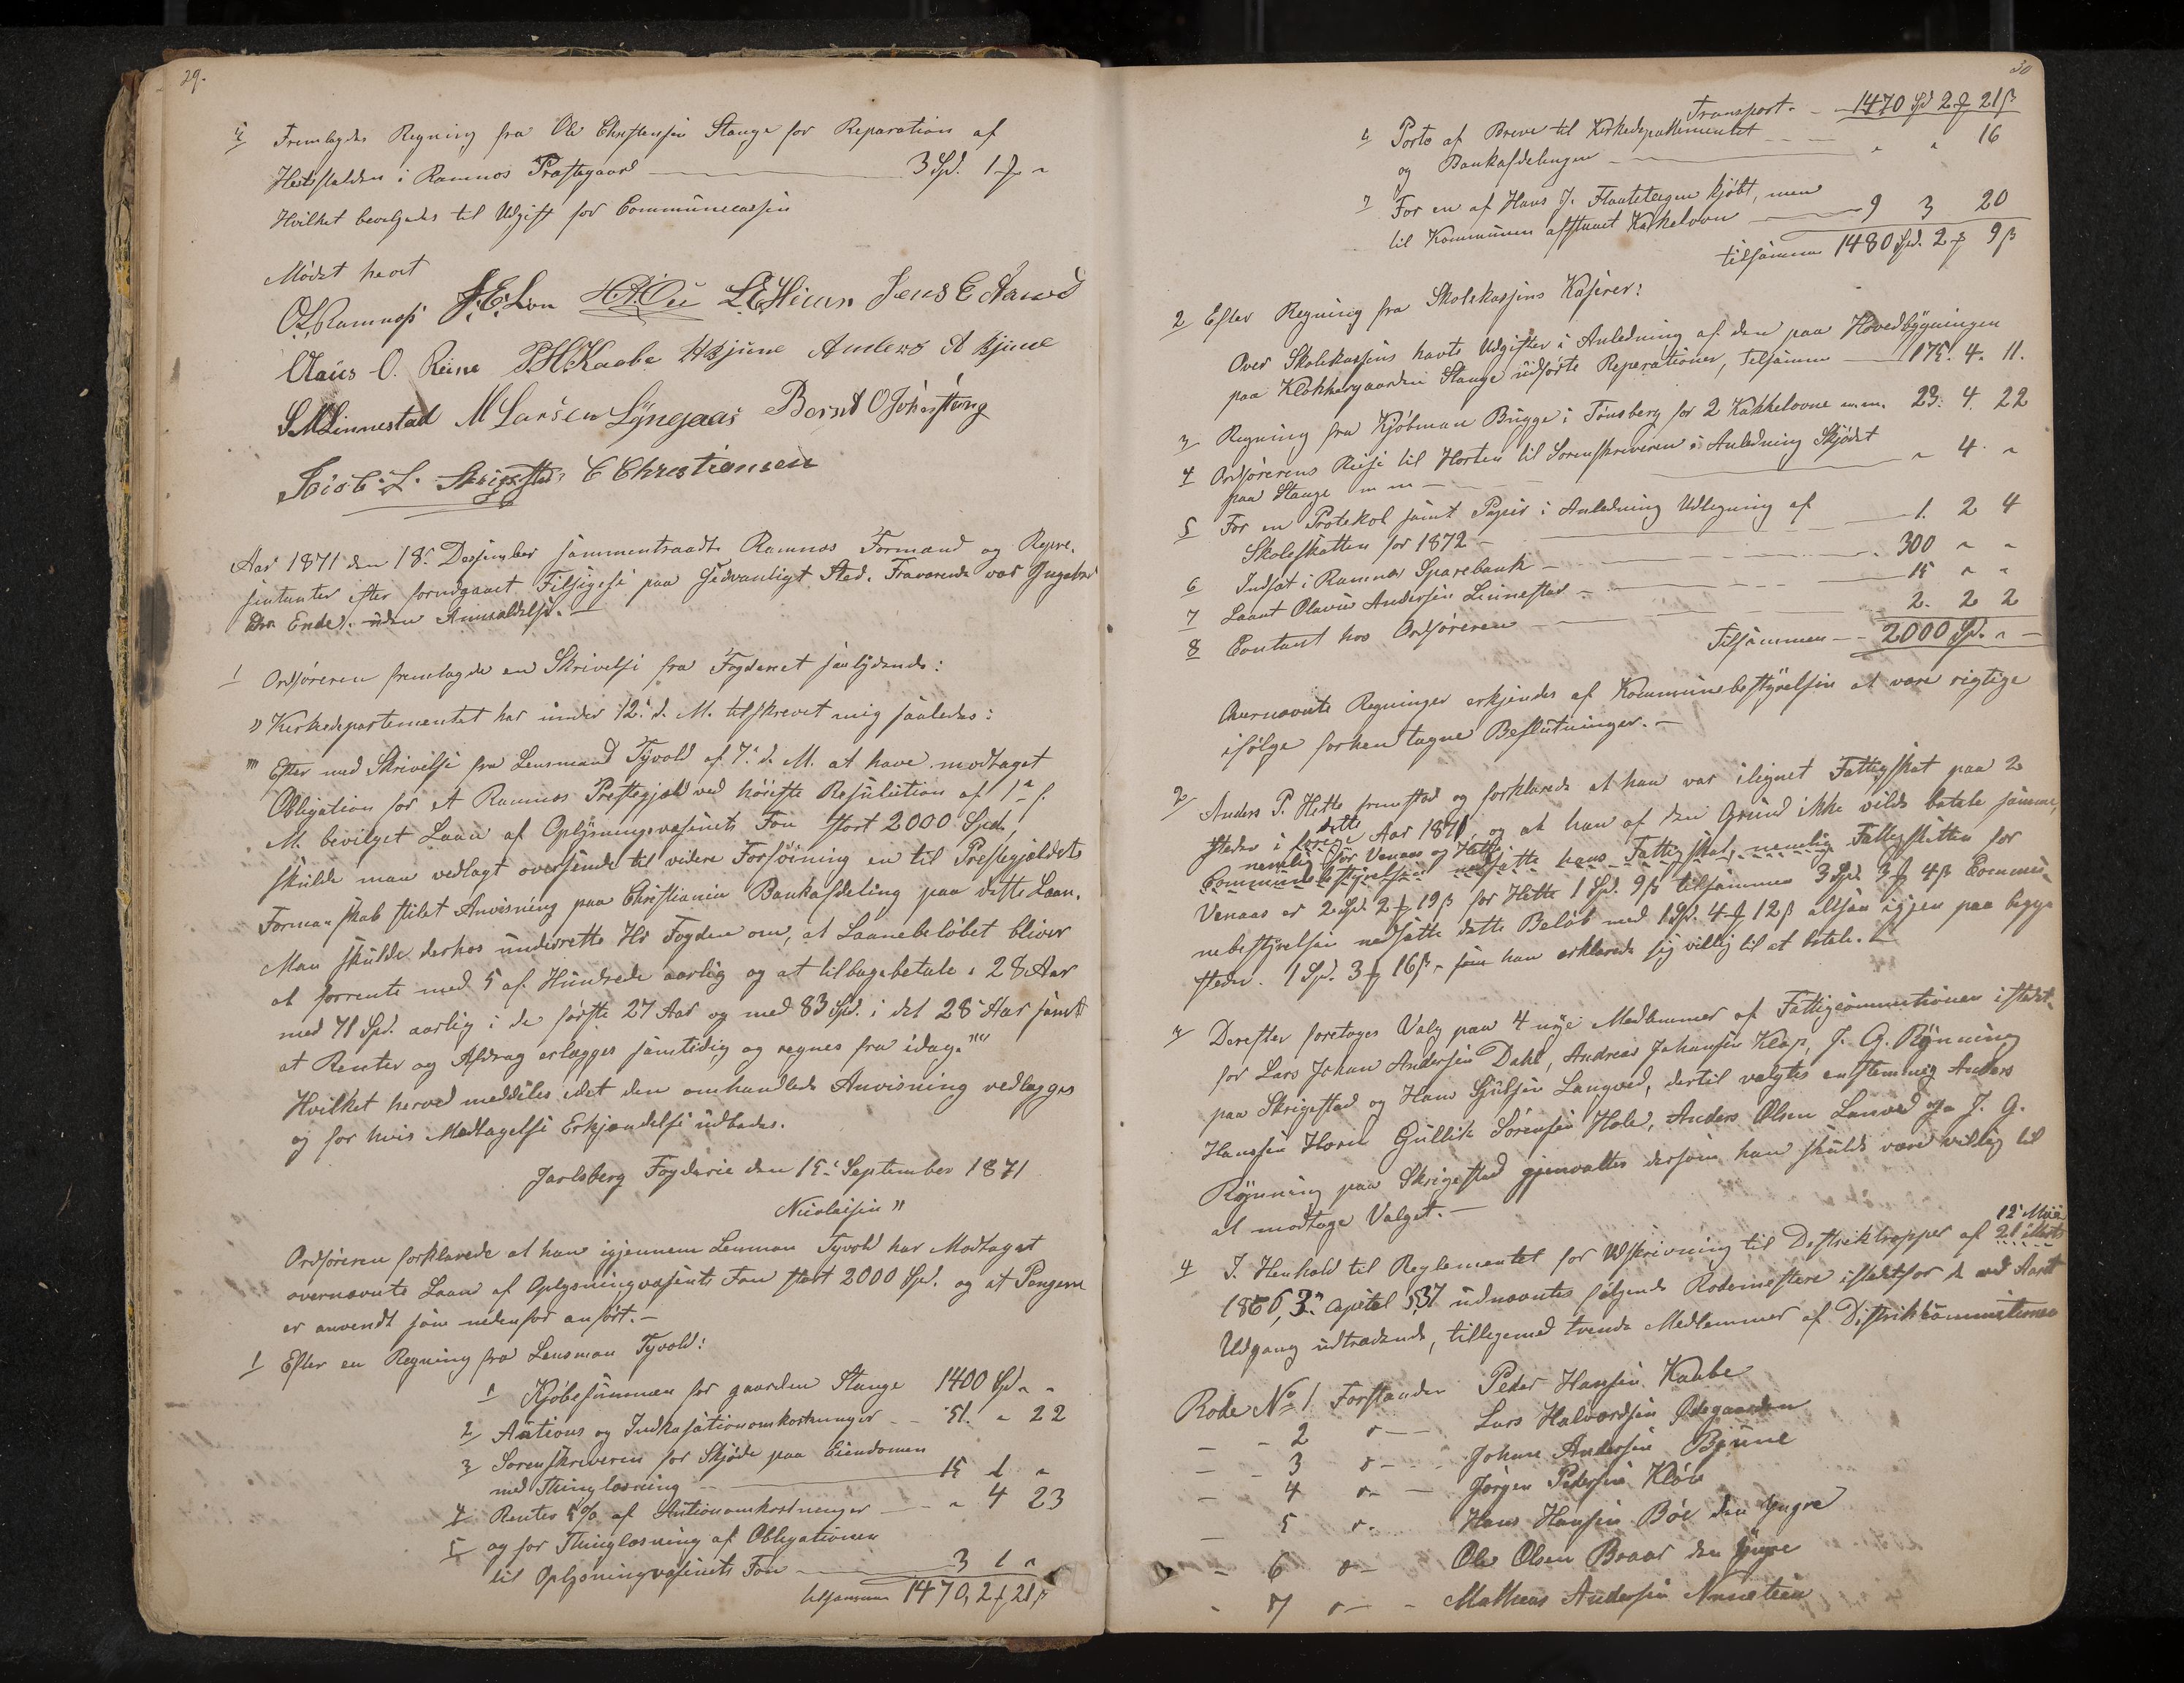 29.
4 Fremlagdes Regning fra Ole Christensen Stange for Reparation af
Hestestalden i Ramnæs Præstegaard 3 Spd. 1 ℔ "
Hvilket bevilgedes til Udgift for Communecassen
Mødet hævet
O.L. Ramnæs J.E. Lon H.A. L.C. Jens C
Claus O. Reine P.H. Kaabe H Bjune Anders A Bjune
S.M. Linnestad M Larsen Lyngaas Bernt O
L. Skrigestad C Christiansen
Aar 1871 den 18. Desember sammentraadte Ramnæs Formænd og Repre-
sentanter efter forudgaaet Tilsigelse paa sædvanligt Sted. Fraværende var Ingebret
Ende, uden Anmeldelse. —
1 Ordføreren fremlagde en Skrivelse fra Fogderiet saalydende:
" Kirkedepartementet har under 12. d. M. tilskrevet mig saaledes:
"" Efter med Skrivelse fra Lensmand Tyvold af 7. d. M. at have modtaget
Obligation for et Ramnæs Prestegjæld ved høieste Resulution af 1 f.
M. bevilget Laan af Oplysningsvæsenets Fon stort 2000 Spd.,
skulde man vedlagt oversende til videre Forføining en til Prestegjældets
Formanskab stilet Anvisning paa Christiania Bankafdeling paa dette Laan.
Man skulde derhos underrette Hr Fogden om, at Laanebeløbet bliver
at forrente med 5 af Hundrede aarlig og at tilbagebetale i 28 Aar
med 71 Spd. aarlig i de første 27 Aar og med 83 Spd. i det 28 Aar samt
at Renter og Afdrag erlægges samtidig og regnes fra idag.""
Hvilket herved meddeles idet den omhandlede Anvisning vedlægges
og for hvis Modtagelse Erkjændelse udbedes.
Jarlsberg Fogderie den 15. September 1871
Nicolaisen "
Ordføreren forklarede at han igjennem Lensman Tyvold har Modtaget
overnævnte Laan af Oplysningvæsenets Fon stort 2000 Spd. og at Pengene
er anvendt som nedenfor anført. —
1 Efter en Regning fra Lensman Tyvold:
1 Kjøbesummen for gaarden Stange 1400 Spd. " "
2 Auctions og Indkasationsomkostninger 51. " 22
3 Sorenskriveren for Skjøde paa Eiendomen
med Thinglæsning 15 1 "
4 Renter 5% af Auctionomkostninger " 4 23
5 og for Thinglæsning af Obligationen
til Oplysningvæsenets Fon 3 1 "
tilsammen 1470, 2 ℔, 21 ß
30
Transport 1470 Spd 2 ℔ 21 ß
6 Porto af Breve til Kirkedepartementet
og Bankafdelingen " " 16
7 For en af Hans J. Flaateteigen kjøbt, men
til Kommunen afstaaet Kakkelovn 9 3 20
tilsammen 1480 Spd. 2 ℔ 9 ß
2 Efter Regning fra Skolekassens Kaserer:
Over Skolekassens havte Udgifter i Anledning af den paa Hovedbygningen
paa Klokkergaarden Stange udførte Reperationer, tilsammen 175. 4. 11.
3 Regning fra Kjøbman Brygge i Tønsberg for 2 Kakkelovne m.m. 23. 4. 22
4 Ordførerens Reise til Horten til Sorenskriveren i Anledning Skjødet
paa Stange m m " 4 "
5 For en Protokol samt Papir i Anledning Udlegning af
Skoleskatten for 1872 1. 2 4
6 Indsat i Ramnæs Sparebank 300 " "
7 Laant Olavus Andersen Linnestad 15 " "
8 Contant hos Ordføreren 2. 2 2
Tilsammen 2000 Spd. " —
Overnævnte Regninger erkjendes af Kommunebestyrelsen at være rigtige
ifølge forhen tagne Beslutninger. —
2 Anders P. Hette fremstod og forklarede at han var ilignet Fattigskat paa 2
Steder i forige dette Aar 1871, og at han af den Grund ikke vilde betale samme,
nemlig for Venaas og Hette
Communebestyrelsen nedsatte hans Fattigskat, nemlig Fattigskatten for
Venaas er 2 Spd. 2 ℔ 19 ß for Hette 1 Spd. 9 ß tilsammen 3 Spd. 3 ℔ 4 ß Commu-
nebestyrelsen nedsatte dette Beløb med 1 Spd. 4 ℔ 12 ß altsaa igjen paa begge
steder. 1 Spd. 3 ℔ 16 ß. som han erklærede sig villig til at betale.
3 Derefter foretoges Valg paa 4 nye Medlemmer af Fattigcommitionen istedet-
for Lars Johan Andersen Dahl, Andreas Johansen Klop, J. G. Rynning
paa Skrigestad og Hans Sjulsen Langved, dertil valgtes enstemmig Anders
Hanssen Horn Gullik Sørensen Hole, Anders Olsen Lanved og J. G.
Rynning paa Skrigestad gjenvaltes dersom han skulde være villig til
at modtage Valget. —
4 I Henhold til Reglementet for Udskrivning til Distriktropper af 21 Marts 12 Mai
1866, 3. Capitel §37 udnævntes følgende Rodemestere istedetfor de ved Aaret
Udgang udtrædende, tilligemed tvende Medlemmer af Distriktcommitionen
Rode No 1 Forstander Peder Hansen Kaabe
— - 2 " — Lars Halvordsen Ødegaarden
— - 3 " — Johan Andersen Bjune
- 4 " — Jørgen Pedersen Kløv
5 " Hans Hansen Bøe den yngre
- 6 " — Ole Olsen Braar den yngre
- 7 " — Mathias Andersen